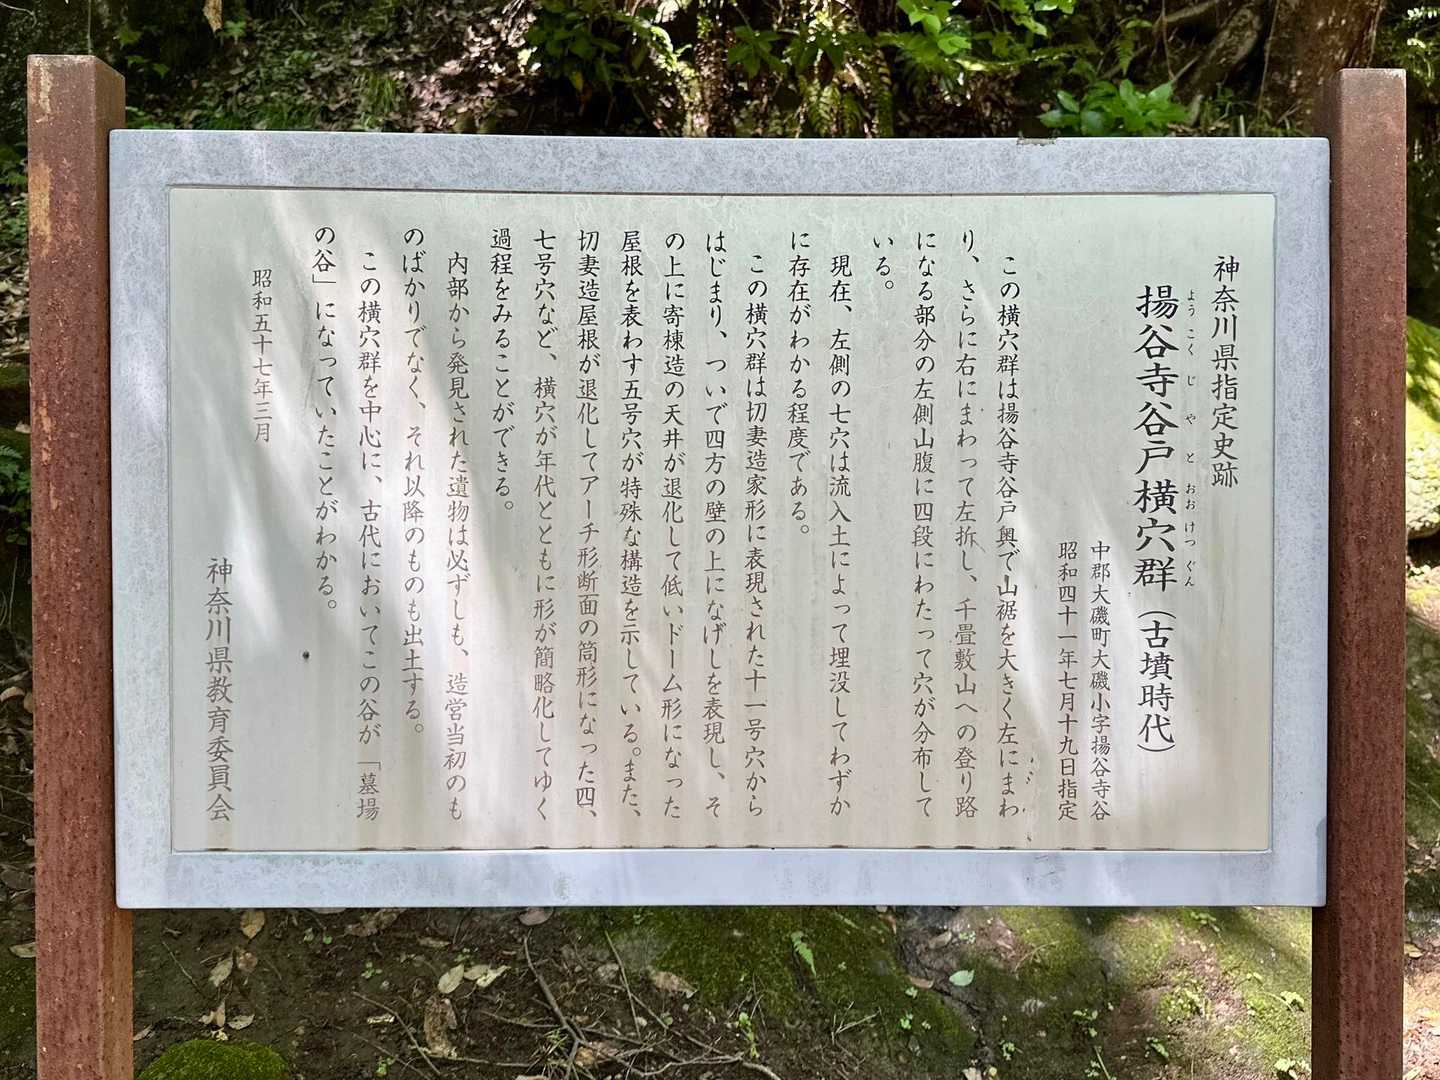 神奈川県指定史跡
ようこくじやとおおけつぐん
揚谷寺谷戸横穴群(古墳時代)
中郡大磯町大磯小字揚谷寺谷
昭和四十一年七月十九日指定
この横穴群は揚谷寺谷戸奥で山裾を大きく左にまわ
り、さらに右にまわって左折し、千畳敷山への登り路
になる部分の左側山腹に四段にわたって穴が分布して
いる。
現在、左側の七穴は流入土によって埋没してわずか
に存在がわかる程度である。
この横穴群は切妻造家形に表現された十一号穴から
はじまり、ついで四方の壁の上になげしを表現し、そ
の上に寄棟造の天井が退化して低いドーム形になった
屋根を表わす五号穴が特殊な構造を示している。また、
切妻造屋根が退化してアーチ形断面の筒形になった四、
七号穴など、横穴が年代とともに形が簡略化してゆく
過程をみることができる。
内部から発見された遺物は必ずしも、造営当初のも
のばかりでなく、それ以降のものも出土する。
この横穴群を中心に、古代においてこの谷が「墓場
の谷」になっていたことがわかる。
昭和五十七年三月
神奈川県教育委員会